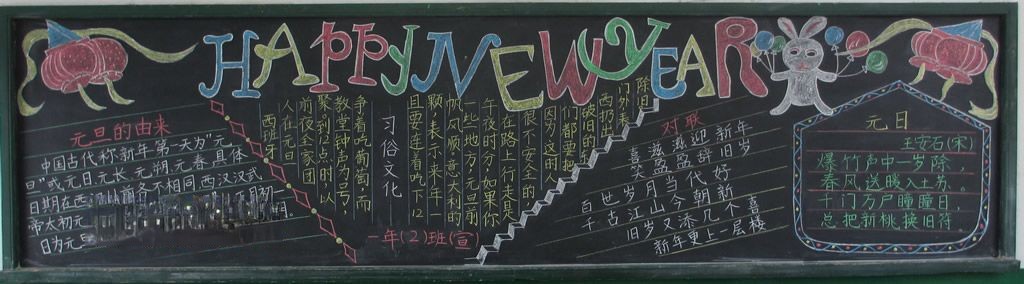 HAPPY NEW YEAR
元旦的由来
中国古代称新年第一天为“元
旦”或元日元长元朔元春具体
日期在西 前各不相同西汉汉武
帝太初元 月初一
日为元旦
西班牙
人在元旦
前夜全家团
聚,到12点时,以
教堂钟声为号,
争着吃葡萄,而
习俗文化
且要连着吃下12
颗,表示来年一
帆风顺,意大利的
一些地方,元旦前
午夜时分,如果你
在路上行走是
很不安全的
因为这时人
们都要把
破旧的
西扔出
门外,表
除旧
一年(2)班(宣)
对联
喜滋滋迎新年
笑盈盈辞旧岁
百世岁月当代好
千古江山今朝新
旧岁又添几个喜
新年更上一层楼
元日
王安石(宋)
爆竹声中一岁除,
春风送暖入土苏。
千门万户瞳瞳日,
总把新桃换旧符